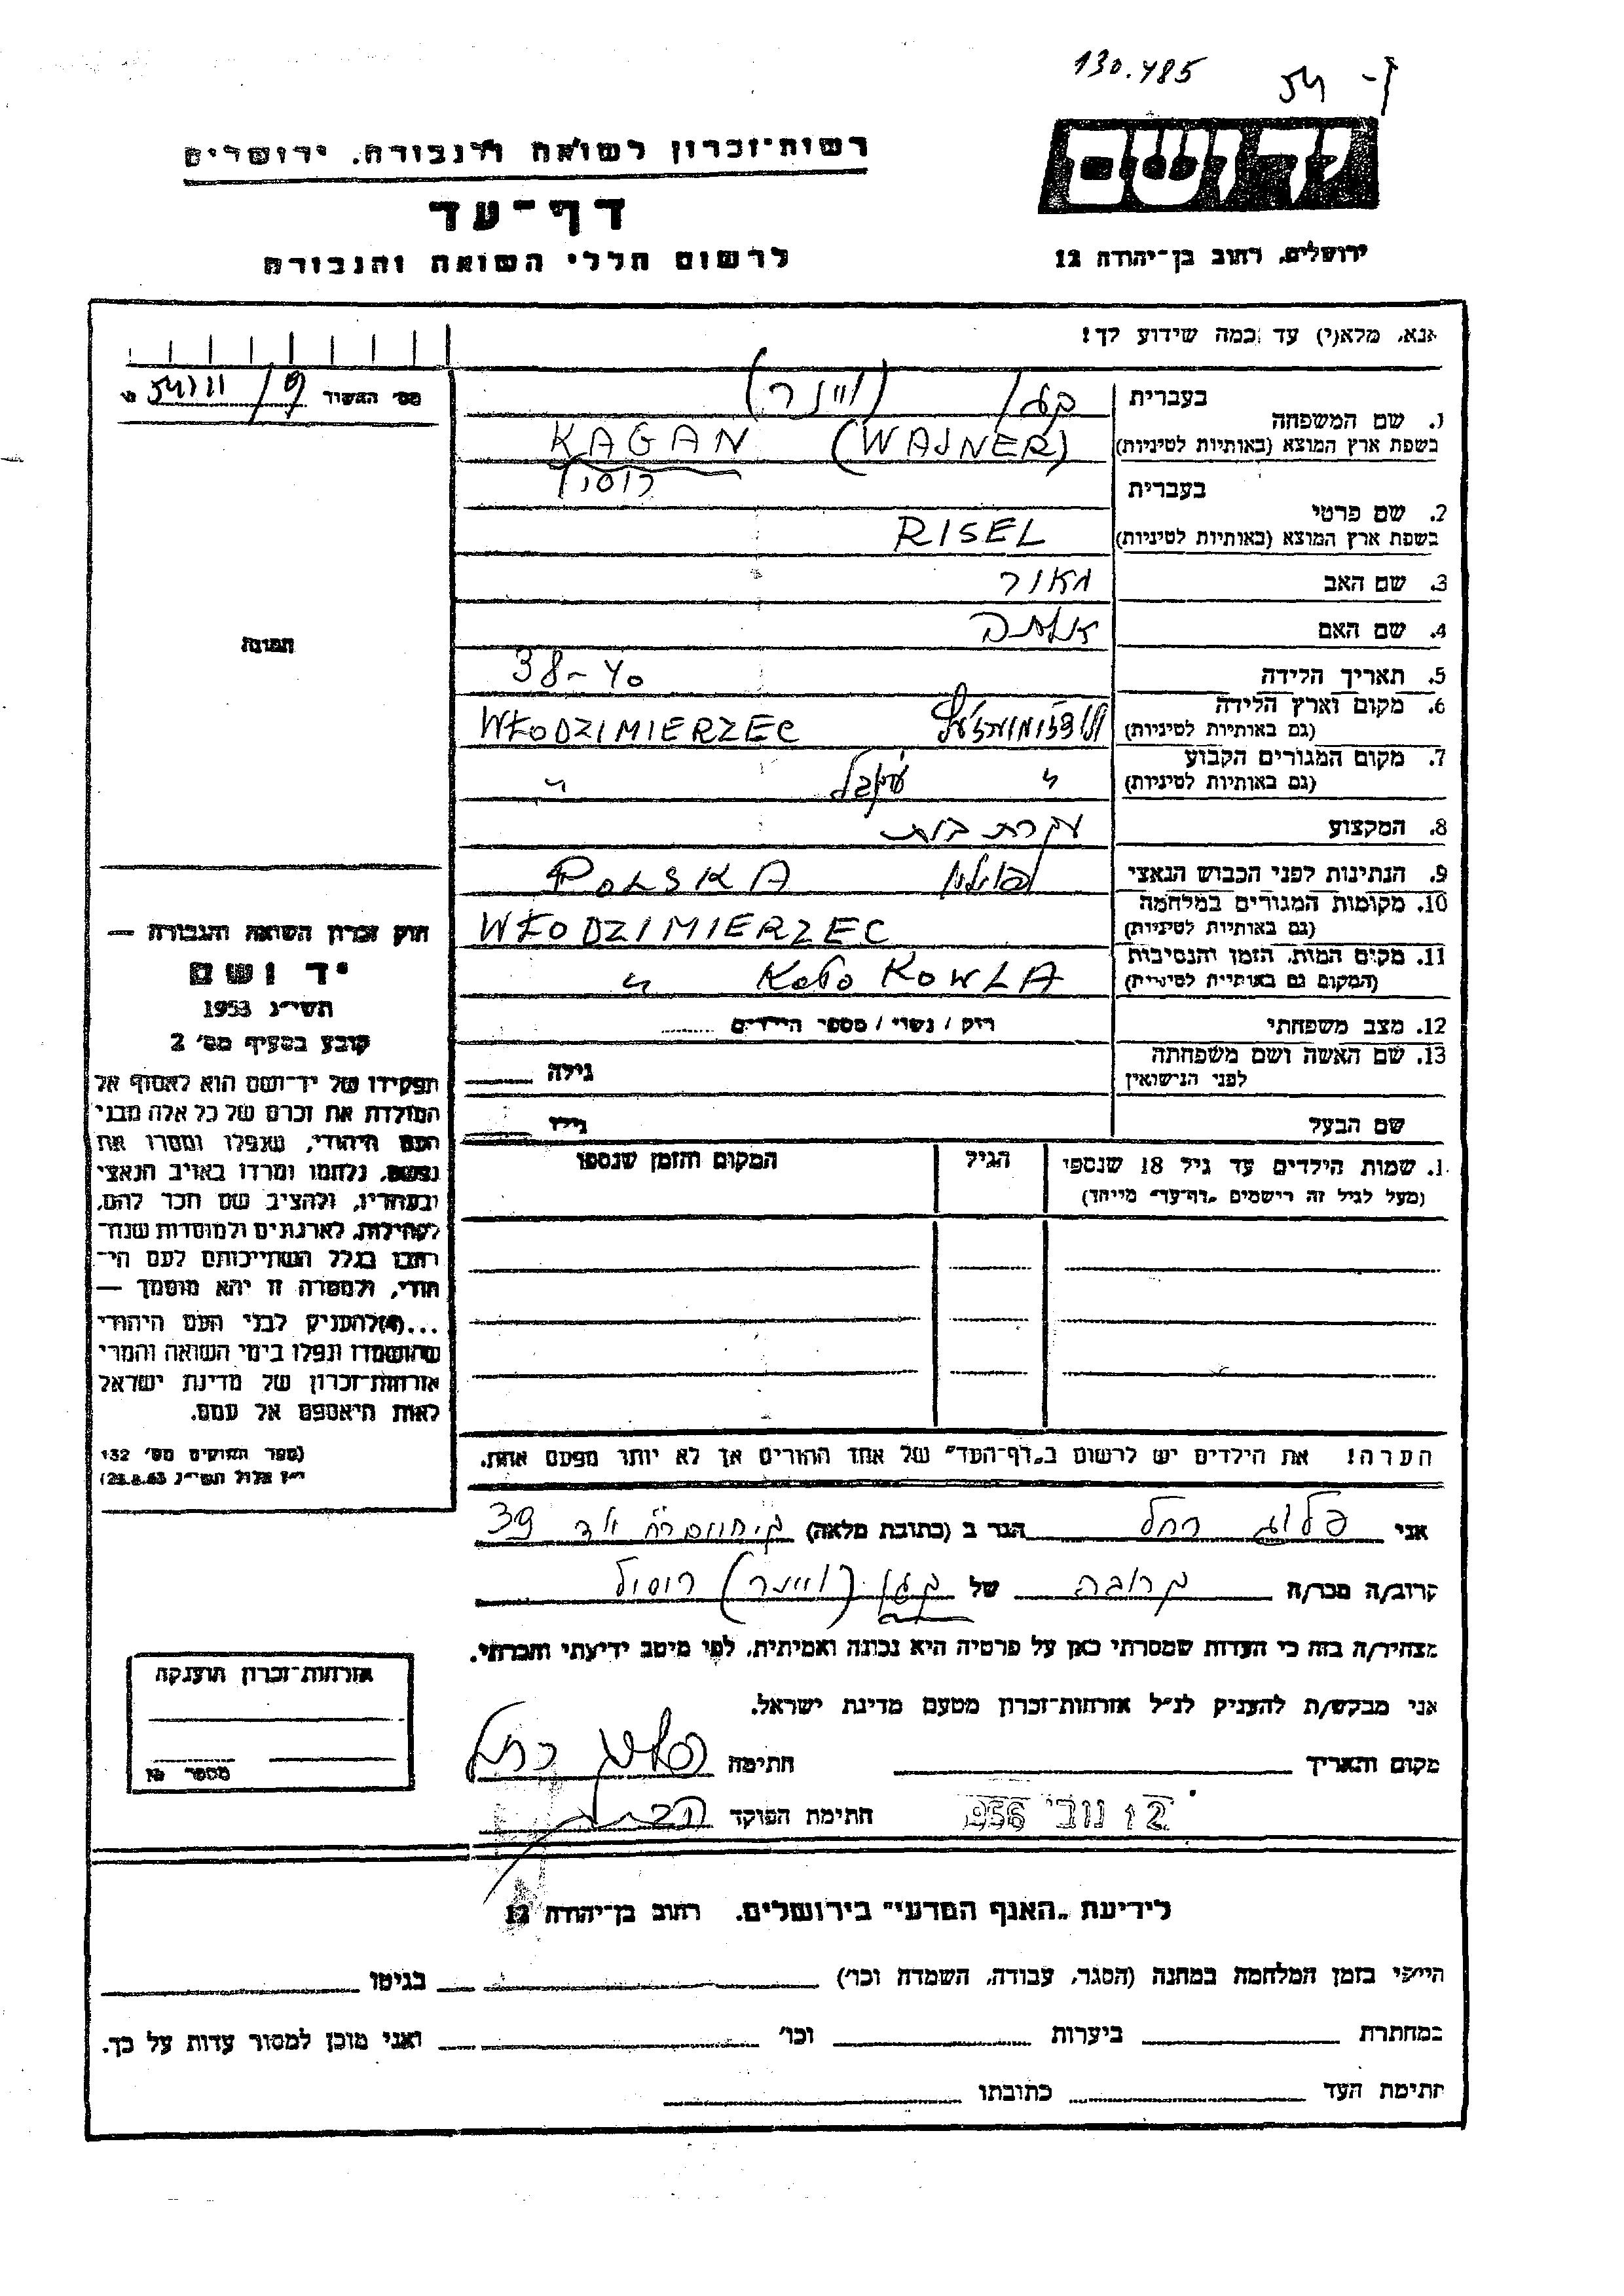 130.485
רשות־זכרון לשואה ולגבורה, ירושלים
דף־עד
לרשום חללי השואה והגבורה
יד ושם
ירושלים, רחוב בן־יהודה 12
אנא, מלא(י) עד כמה שידוע לך!
מס׳ האשור
1. שם המשפחה בעברית קגן (ויינר)
בשפת ארץ המוצא (באותיות לטיניות) KAGAN (WAJNER)
2. שם פרטי בעברית ריסיל
בשפת ארץ המוצא (באותיות לטיניות) RISEL
3. שם האב
4. שם האם
5. תאריך הלידה 38-40
6. מקום וארץ הלידה
(גם באותיות לטיניות) WŁODZIMIERZEC
7. מקום המגורים הקבוע
(גם באותיות לטיניות) " "
8. המקצוע עקרת בית
9. הנתינות לפני הכבוש הנאצי פולין POLSKA
10. מקומות המגורים במלחמה
(גם באותיות לטיניות) WŁODZIMIERZEC
11. מקום המות, הזמן והנסיבות
(המקום גם באותיות לטיניות) KOŁO KOWLA "
12. מצב משפחתי רוק / נשוי / מספר הילדים
13. שם האשה ושם משפחתה
לפני הנישואין גילה
שם הבעל גילו
1. שמות הילדים עד גיל 18 שנספו הגיל המקום והזמן שנספו
(מעל לגיל זה רישמים „דף־עד” מייחד)
הערה! את הילדים יש לרשום ב„דף־העד” של אחד ההורים אך לא יותר מפעם אחת.
תמונה
חוק זכרון השואה והגבורה —
יד ושם
תשי״ג 1953
קובע בסעיף מס׳ 2
תפקידו של יד־ושם הוא לאסוף אל
המולדת את זכרם של כל אלה מבני
העם היהודי, שנפלו ומסרו את
נפשם, נלחמו ומרדו באויב הנאצי
ובעוזריו, ולהציב שם וזכר להם,
לקהילות, לארגונים ולמוסדות שנח־
רבו בגלל השתייכותם לעם הי־
הודי, ולמטרה זו יהא מוסמך —
...(4)להעניק לבני העם היהודי
שהושמדו ונפלו בימי השואה והמרי
אזרחות־זכרון של מדינת ישראל
לאות היאספם אל עמם.
(ספר החוקים מס׳ 132
י״ז אלול תשי״ג 28.8.53)
אני פלוג רחל הגר ב (כתובת מלאה) 39
קרוב/ה מכר/ה קרובה של קגן (ויינר) ריסיל
מצהיר/ה בזה כי העדות שמסרתי כאן על פרטיה היא נכונה ואמיתית, לפי מיטב ידיעתי והכרתי.
אני מבקש/ת להעניק לנ״ל אזרחות־זכרון מטעם מדינת ישראל.
מקום ותאריך חתימה פלוג רחל
12 נוב׳ 1956 חתימת הפוקד
אזרחות־זכרון הוענקה
מספר №
לידיעת „האגף המדעי” בירושלים, רחוב בן־יהודה 12
הייתי בזמן המלחמה במחנה (הסגר, עבודה, השמדה וכו׳) בגיטו
במחתרת ביערות וכו׳ ואני מוכן למסור עדות על כך.
חתימת העד כתובתו